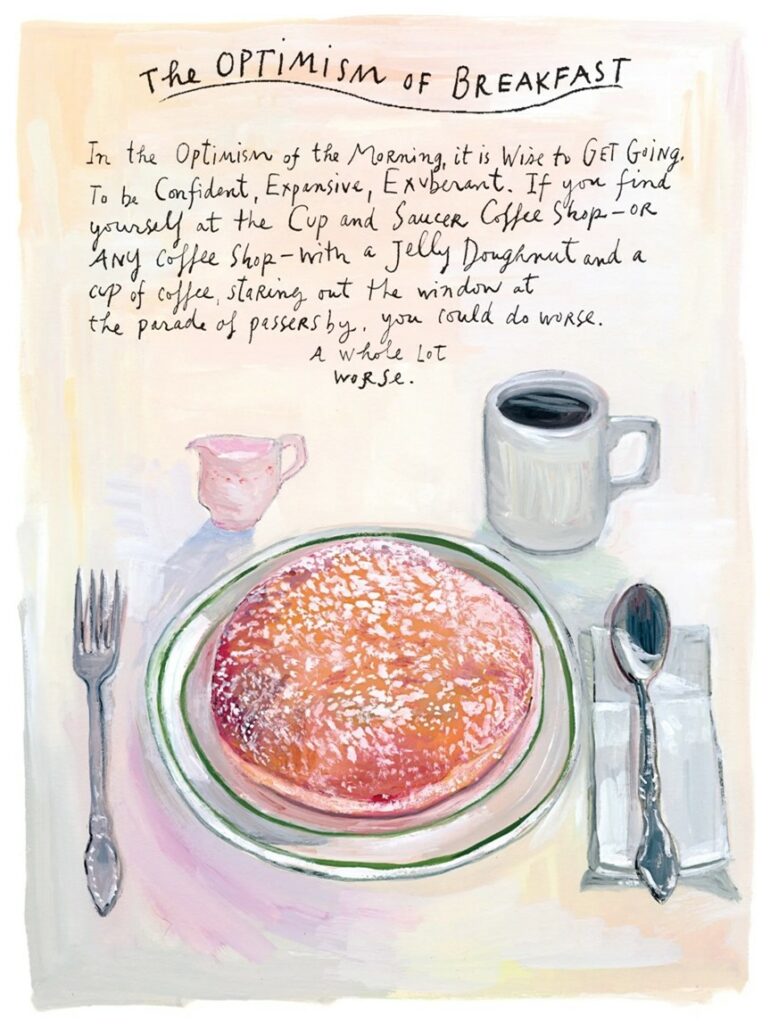 The OPTIMISM OF BREAKFAST
In the Optimism of the Morning, it is Wise to GET GOING.
To be Confident, Expansive, Exuberant. If you find
yourself at the Cup and Saucer Coffee Shop - OR
ANY Coffee Shop - With a Jelly Doughnut and a
cup of coffee, staring out the window at
the parade of passersby, you could do worse.
A Whole Lot
Worse.